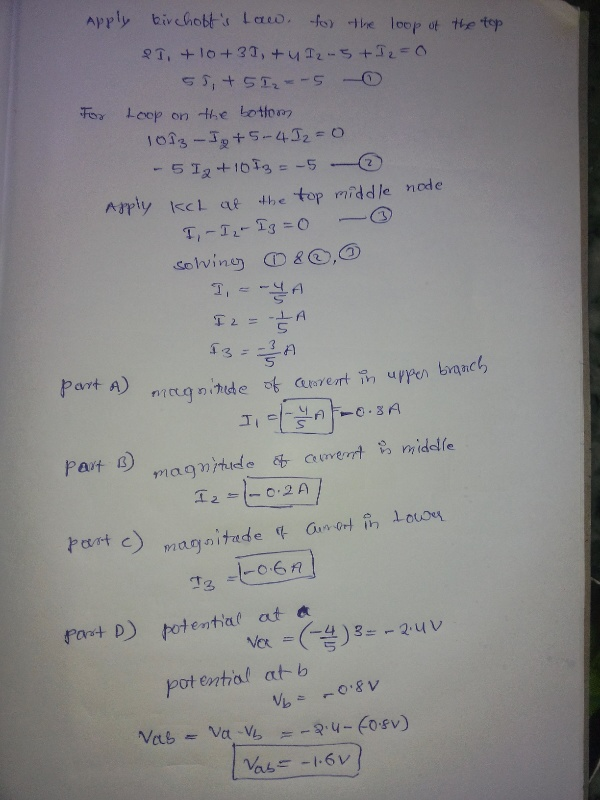 Apply kirchoff's Law. for the loop of the top
2I₁ + 10 + 3I₁ + 4I₂ - 5 + I₂ = 0
5I₁ + 5I₂ = -5 —①
For Loop on the bottom
10I₃ - I₂ + 5 - 4I₂ = 0
- 5I₂ + 10I₃ = -5 —②
Apply KCL at the top middle node
I₁ - I₂ - I₃ = 0 —③
solving ① & ②, ③
I₁ = -4/5 A
I₂ = -1/5 A
I₃ = -3/5 A
part A) magnitude of current in upper branch
I₁ = -4/5 A = -0.8A
part B) magnitude of current in middle
I₂ = -0.2A
part C) magnitude of current in Lower
I₃ = -0.6A
part D) potential at a
Va = (-4/5)3 = -2.4V
potential at b
Vb = -0.8V
Vab = Va - Vb = -2.4 - (-0.8V)
Vab = -1.6V